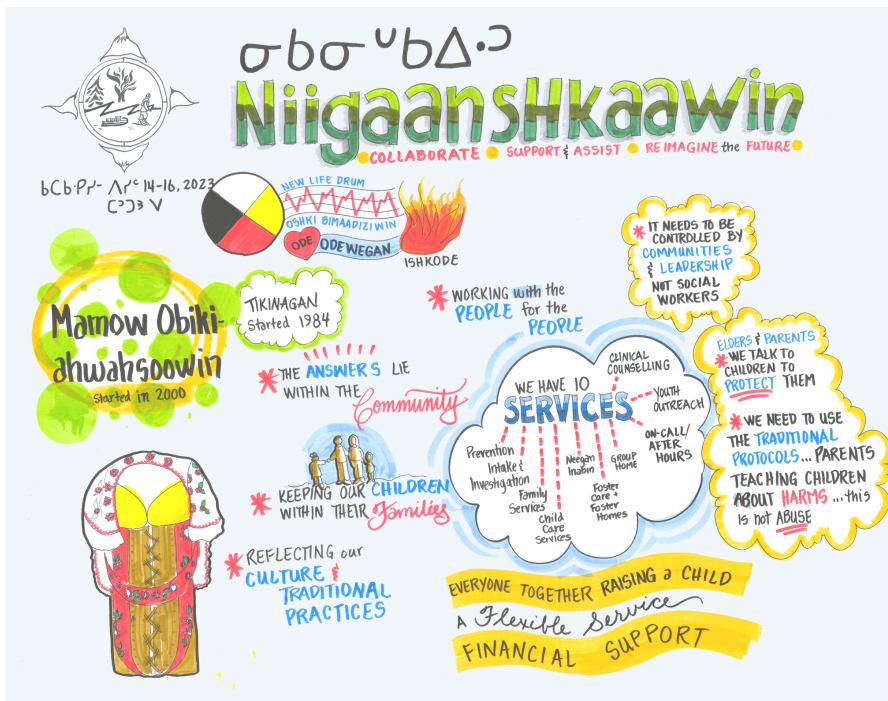 ᓂᑲᓂᐡᑲᐃᐧᐣ
Niigaanshkaawin
COLLABORATE • SUPPORT & ASSIST • REIMAGINE the FUTURE
14-16, 2023
NEW LIFE DRUM
OSHKI BIMAADIZIWIN
ODE
ODEWEGAN
ISHKODE
Mamow Obiki-
ahwahsoowin
started in 2000
TIKINAGAN
started 1984
* THE ANSWERS LIE
WITHIN THE
Community
* KEEPING OUR CHILDREN
WITHIN THEIR Families
* REFLECTING our
CULTURE &
TRADITIONAL
PRACTICES
* WORKING with the
PEOPLE for the
PEOPLE
* IT NEEDS TO BE
CONTROLLED BY
COMMUNITIES
& LEADERSHIP
NOT SOCIAL
WORKERS
WE HAVE 10
SERVICES
Prevention
Intake &
Investigation
Family
Services
Child
Care
Services
Neegan
Inabin
Foster
Care +
Foster
Homes
GROUP
HOME
ON-CALL/
AFTER
HOURS
YOUTH
OUTREACH
CLINICAL
COUNSELLING
ELDERS & PARENTS
* WE TALK TO
CHILDREN TO
PROTECT THEM
* WE NEED TO USE
THE TRADITIONAL
PROTOCOLS... PARENTS
TEACHING CHILDREN
ABOUT HARMS ...this
is not ABUSE
EVERYONE TOGETHER RAISING a CHILD
A Flexible Service
FINANCIAL SUPPORT